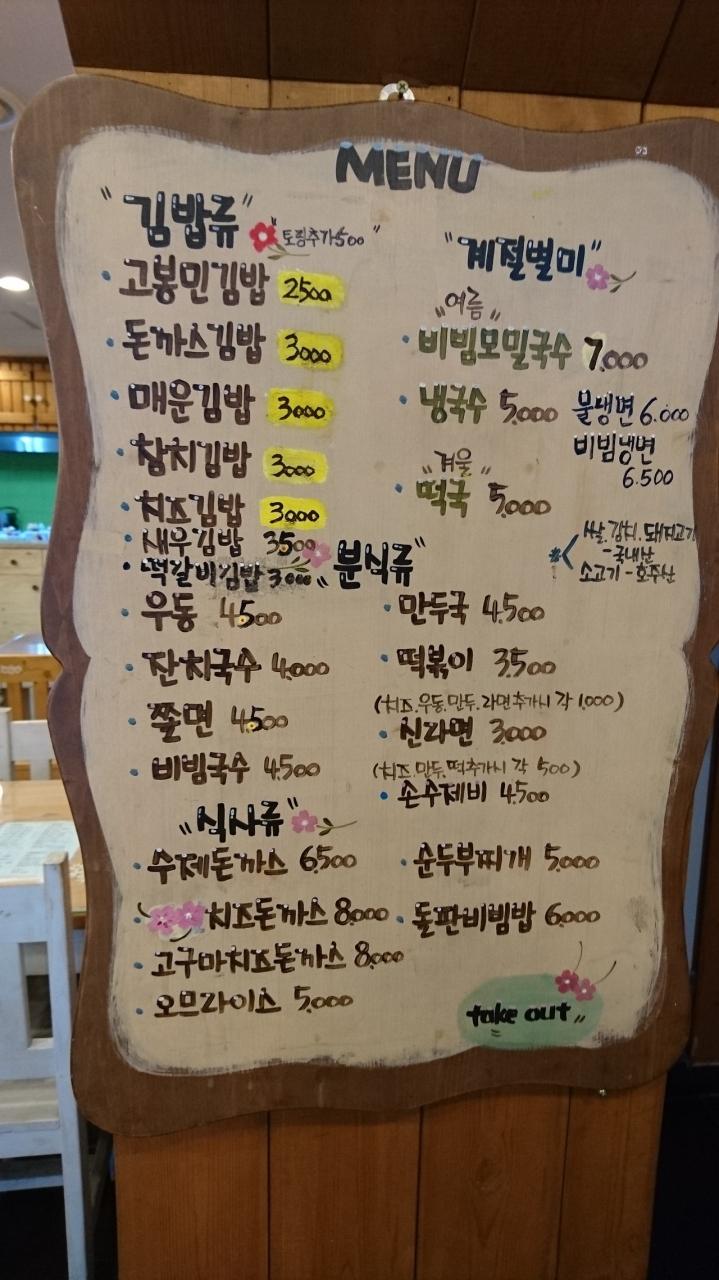 MENU
"김밥류" 토핑추가 500"
· 고봉민김밥 2500
· 돈까스김밥 3000
· 매운김밥 3000
· 참치김밥 3000
· 치즈김밥 3000
· 새우김밥 3500
· 떡갈비김밥 3000
"계절별미"
"여름"
· 비빔모밀국수 7,000
· 냉국수 5,000
물냉면 6.000
비빔냉면
6.500
"겨울"
· 떡국 5,000
*< 쌀.김치.돼지고기
-국내산
소고기-호주산
"분식류"
· 우동 4500
· 잔치국수 4,000
· 쫄면 4500
· 비빔국수 4500
· 만두국 4,500
· 떡볶이 3,500
(치즈.우동.만두.라면추가시 각 1,000)
· 신라면 3,000
(치즈.만두.떡추가시 각 500)
· 손수제비 4,500
"식사류"
· 수제돈까스 6,500
· 치즈돈까스 8,000
· 고구마치즈돈까스 8,000
· 오므라이스 5,000
· 순두부찌개 5,000
· 돌판비빔밥 6,000
take out